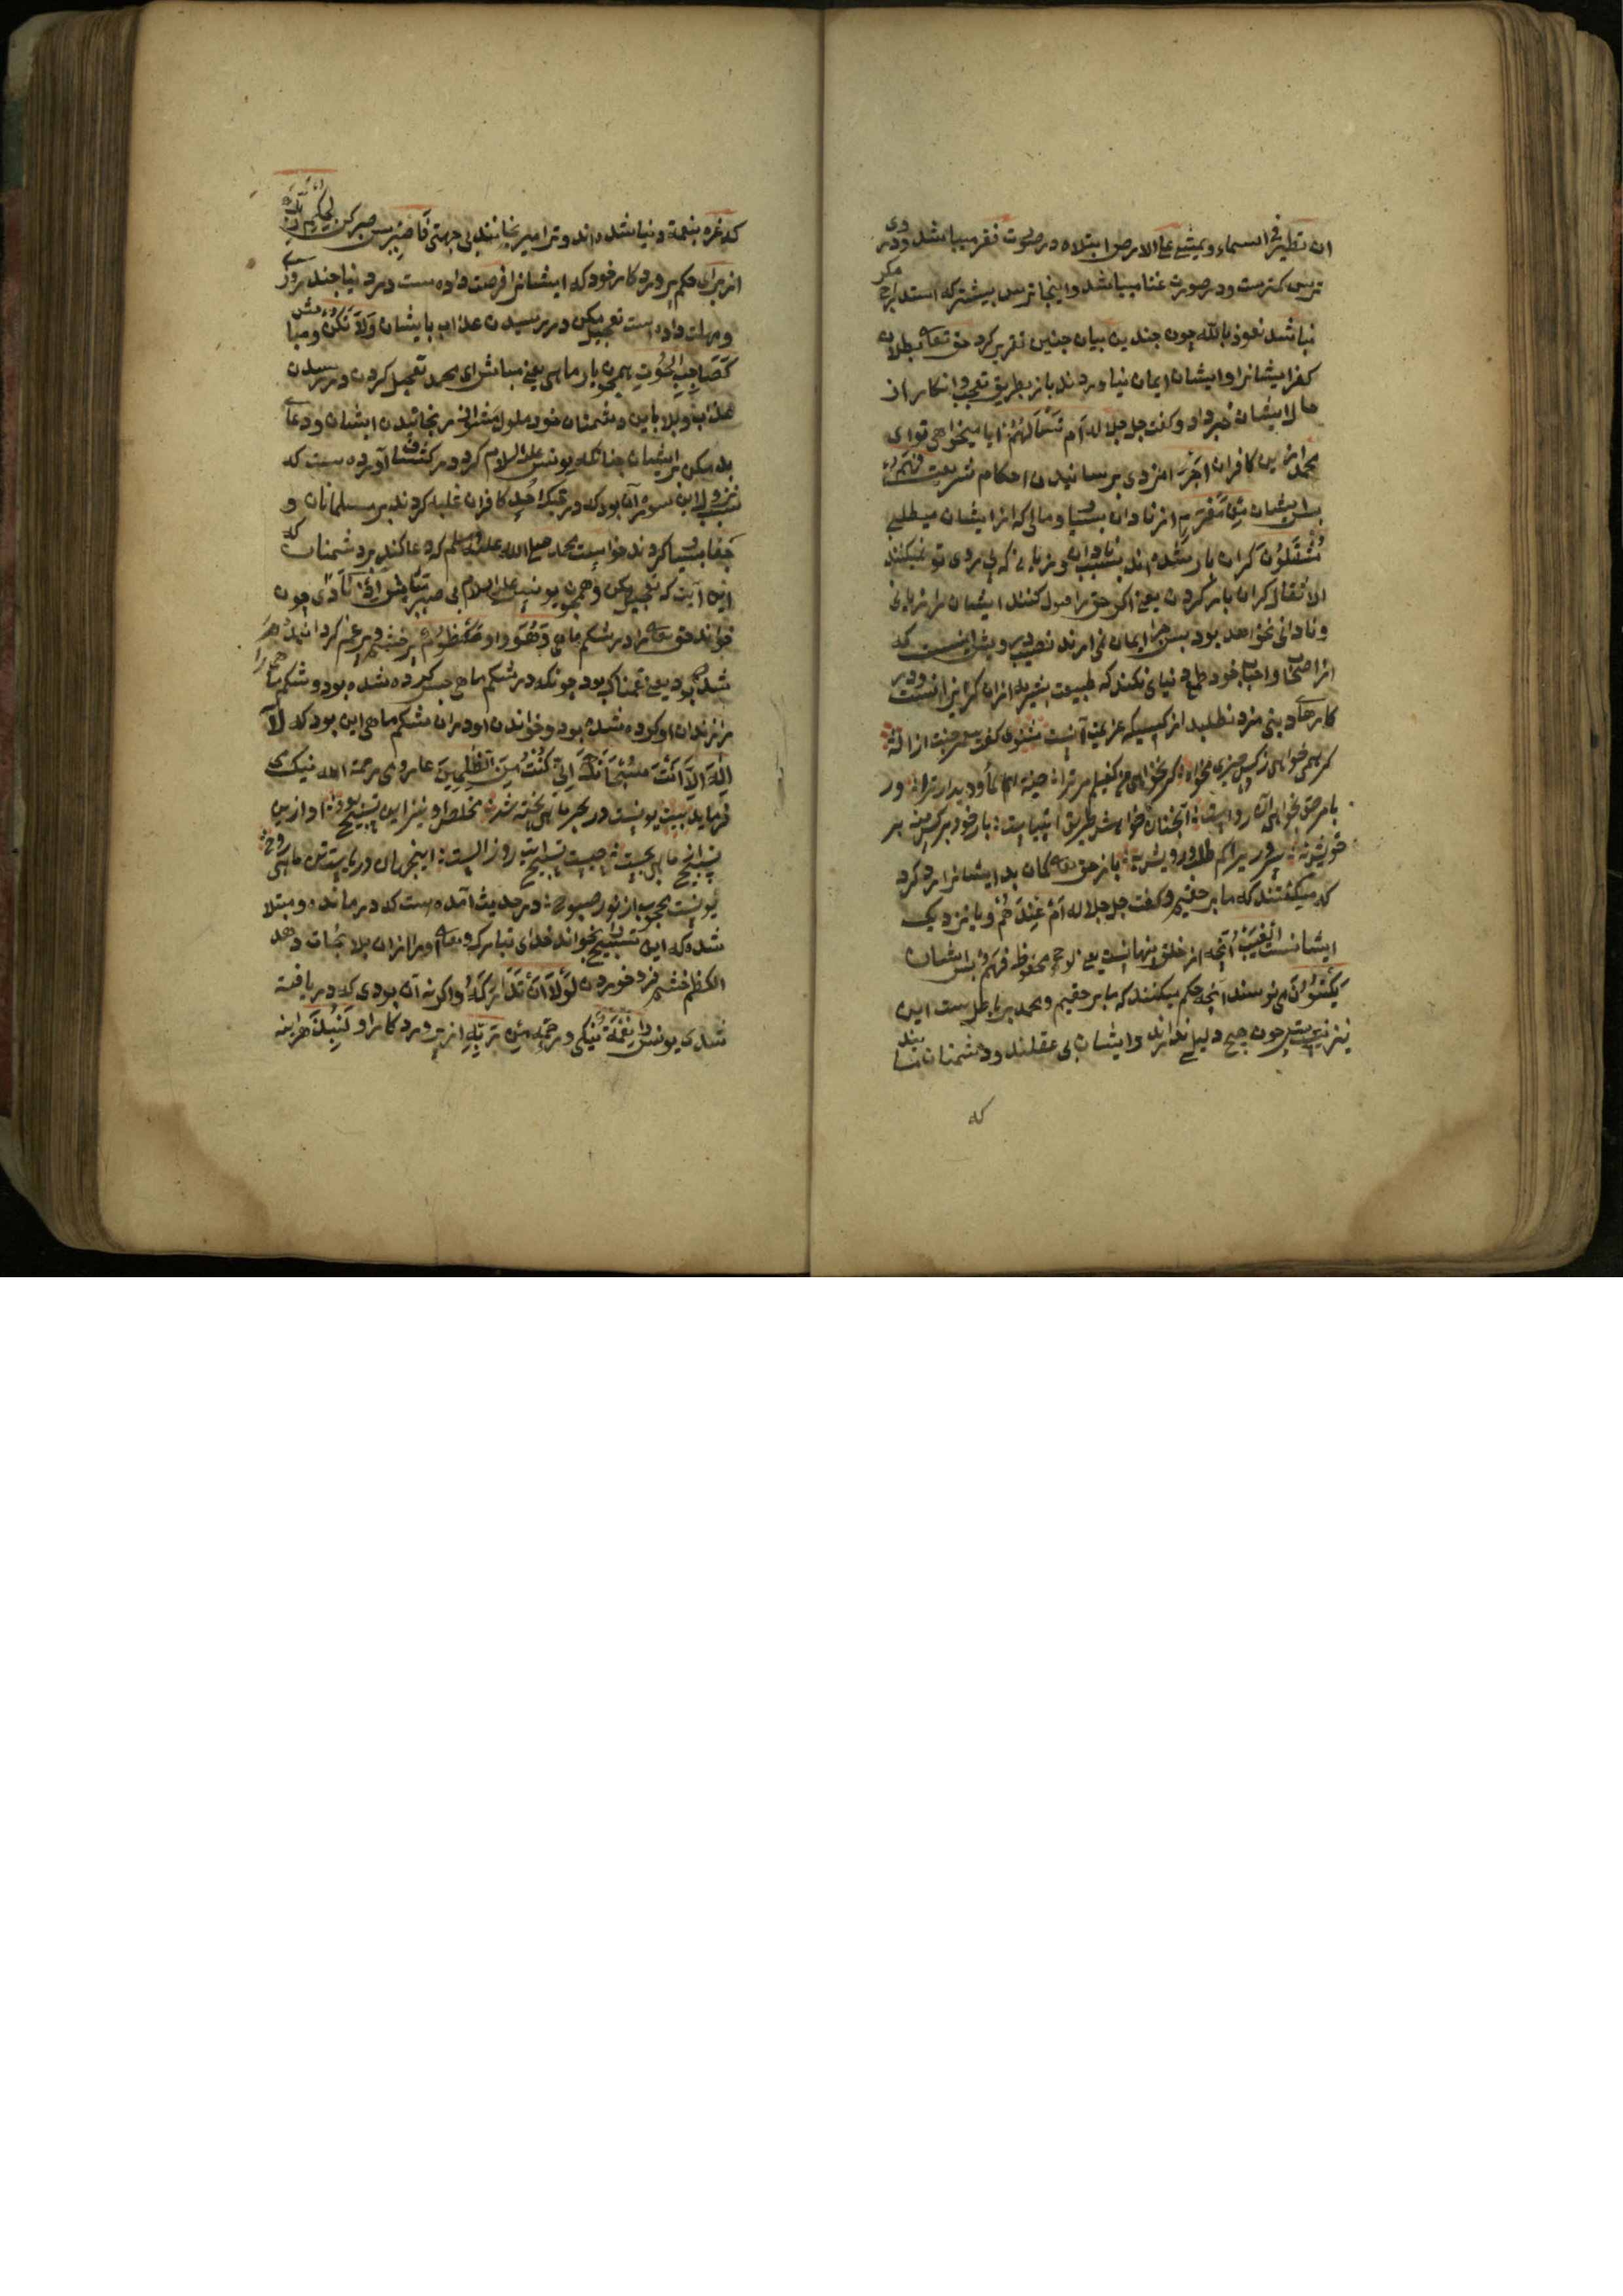 ان تطیر فی السماء و یمشی علی الارض ابتلاء در صورت فقر میباشد و دری
ترس کمترست و در صورت غنا میباشد و اینجا ترس بیشتر که استدراج مکر
نباشد نعوذ بالله چون چندین بیان چنین تقریر کرد حق تعالی بطلان
کفر ایشانرا و ایشان ایمان نیاوردند باز بطریق تعجب و انکار از
حال ایشان خبر داد و گفت جل جلاله اَم تَسْأَلُهُمْ ایا میخواهی تو ای
محمد ازین کافران اَجْرًا مزدی برسانیدن احکام شریعت فَهُمْ
پس ایشان مِنْ مَغْرَمٍ از تاوان بسیار و مالی که از ایشان میطلبی
مُثْقَلُونَ گران بار شده اند بسبب تاوان و زیانی که پی روی تو نمیکنند
الاثقال گران بار کردن یعنی اگر حق را قبول کنند ایشان را زیانی
و تاوانی نخواهد بود پس چرا ایمان نمی ارند نصیب درویش اینست که
از اصحاب و احباب خود طمع دنیای نکند که طبیعت بشریه ازان گریزانست و در
کارهای دینی مزد نطلبد از کسی که عزیمت آنست مثنوی گفت پیغمبر جنت از اله
گر همی خواهی ز کس چیزی مخواه گر نخواهی من کفیلم مر ترا جنة الماوی و دیدار ترا ور
بامر حق بخواهی آن رواست آنچنان خواهش طریق انبیاست بار خود بر کس منه بر
خویش نه سروری را کم طلب درویش به باز حق تعالی کمان بد ایشانرا رد کرد
که میگفتند که ما بر حقیم و گفت جل جلاله اَمْ عِنْدَهُمُ و یا نزدیک
ایشانست الْغَيْبُ آنچه از خلق پنهانست یعنی لوح محفوظ فَهُمْ پس ایشان
يَكْتُبُونَ می نویسند آنچه حکم میکنند که ما بر حقیم و محمد بر باطل ست این
نیز نیست چون هیچ دلیلی ندارند و ایشان بی عقلند و دشمنان
که
که غره بنعمة دنیا شده اند و ترا میرنجانند بی جهتی فَاصْبِرْ پس صبر کن لِحُكْمِ رَبِّكَ
از برای حکم پروردکار خود که ایشانرا فرصت داده ست در دنیا چند روزی
و مهلت داده است تعجیل مکن در رسیدن عذاب بایشان وَلَا تَكُنْ و مباش
كَصَاحِبِ الْحُوتِ همچون یار ماهی یعنی مباش ای محمد تعجیل کردن در رسیدن
عذاب و بلا باین دشمنان خود ملول مشو از رنجانیدن ایشان و دعای
بد مکن بر ایشان چنانکه یونس علیه السلام کرد در کشاف آورده ست که
سبب نزول این سوره آن بود که در جنک احد کافران غلبه کردند بر مسلمانان و
جفا بسیار کردند خواست محمد صلی الله علیه وسلم که دعا کند بر دشمنان که
این آیت که تعجیل مکن و همچون یونس علیه السلام بی صبر مباش اِذْ نَادَى چون
خواند حق تعالی را در شکم ماهی وَهُوَ و او مَكْظُومٌ پر خشم و پر غم کردانیده
شده بود یعنی غمناک بود چونکه در شکم ماهی حبس کرده شده بود و شکم ماهی را
زندان او کرده شده بود و خواندن او دران شکم ماهی این بود که لَا
اِلٰهَ اِلَّا اَنْتَ سُبْحَانَكَ اِنِّي كُنْتُ مِنَ الظَّالِمِينَ عارف رومی رحمة الله نیک
فرماید بیت یونست در بحر ماهی پخته شد مخلصش را نیز این تسبیح بود او ازین
تسبیح از ماهی بجست چیست تسبیح آیت روز الست این جهان دریاست تن ماهی و روح
یونست محجوب از نور صبوح در حدیث آمده ست که درمانده و مبتلا
شده که این تسبیح بخواند خدای تبارک و تعالی او را ازان بلا نجات دهد
الکظم خشم فرو خوردن لَوْلَا اَنْ تَدَارَكَهُ و اکر نه آن بودی که دریافته
شدی یونس را نِعْمَةٌ نیکی و رحمت مِنْ رَبِّهِ از پروردکار او لَنُبِذَ هراینه